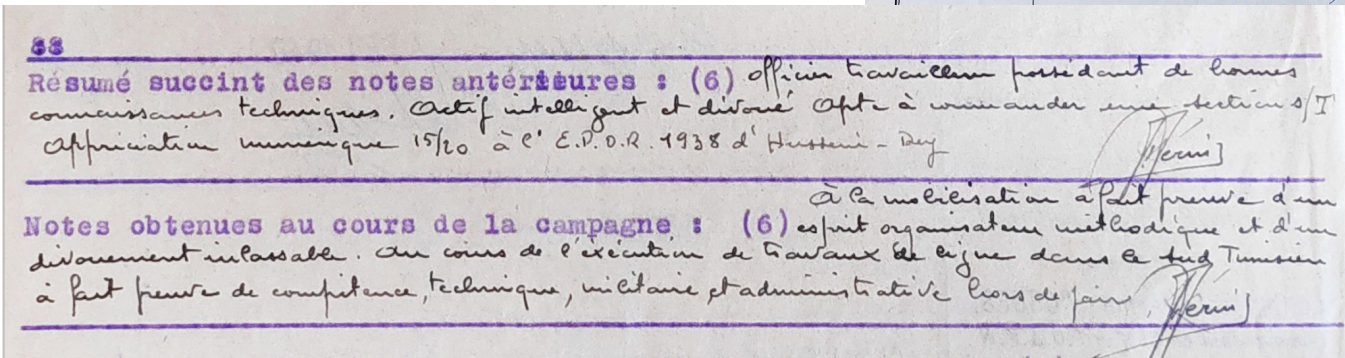 88
Résumé succint des notes antérieures : (6) Officier travailleur possédant de bonnes
connaissances techniques. Actif intelligent et dévoué Apte à commander une section s/T
Appréciation numérique 15/20 à l' E.P.O.R. 1938 d' Hussein-Dey
à la mobilisation à fait preuve d'un
Notes obtenues au cours de la campagne : (6) esprit organisateur méthodique et d'un
dévouement inlassable. Au cours de l'exécution de travaux de ligne dans le sud Tunisien
à fait preuve de compétence, technique, militaire et administrative hors de pair